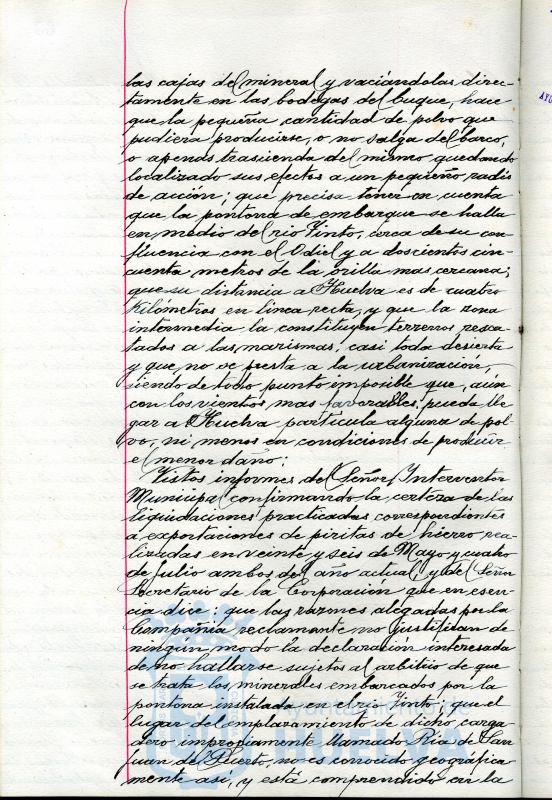 las cajas del mineral y vaciándolas direc-
tamente en las bodegas del buque, hace
que la pequeña cantidad de polvo que
pudiera producirse, o no salga del barco,
o apenas trascienda del mismo quedando
localizado sus efectos a un pequeño radio
de acción; que precisa tener en cuenta
que la pontona de embarque se halla
en medio del rio Tinto, cerca de su con-
fluencia con el Odiel y a doscientos cin-
cuenta metros de la orilla mas cercana;
que su distancia a Huelva es de cuatro
Kilómetros en linea recta, y que la zona
intermedia la constituyen terrenos resca-
tados a las marismas, casi toda desierta
y que no se presta a la urbanización,
siendo de todo punto imposible que, aún
con los vientos mas favorables, pueda lle-
gar a Huelva particula alguna de pol-
vo, ni menos en condiciones de producir
el menor daño;
Vistos informes del Señor Interventor
Municipal confirmando la certeza de las
liquidaciones practicadas correspondientes
a exportaciones de piritas de hierro rea-
lizadas en veinte y seis de Mayo y cuatro
de Julio ambos del año actual; y del Señor
Secretario de la Corporación que en esen-
cia dice: que las razones alegadas por la
Compañía reclamante no justifican de
ningún modo la declaración interesada
de no hallarse sujetos al arbitrio de que
se trata los minerales embarcados por la
pontona instalada en el rio Tinto; que el
lugar del emplazamiento de dicho carga-
dero impropiamente llamado Ria de San
Juan del Puerto, no es conocido geográfica-
mente así, y está comprendido en la
Ayuntamiento de
HUELVA